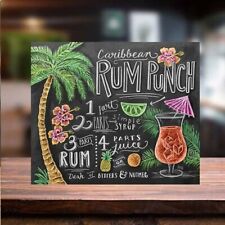 Caribbean
RUM PUNCH
1 part
2 PARTS simple
SYRUP
3 PARTS
RUM
4 PARTS
juice
Dash of BITTERS & NUTMEG